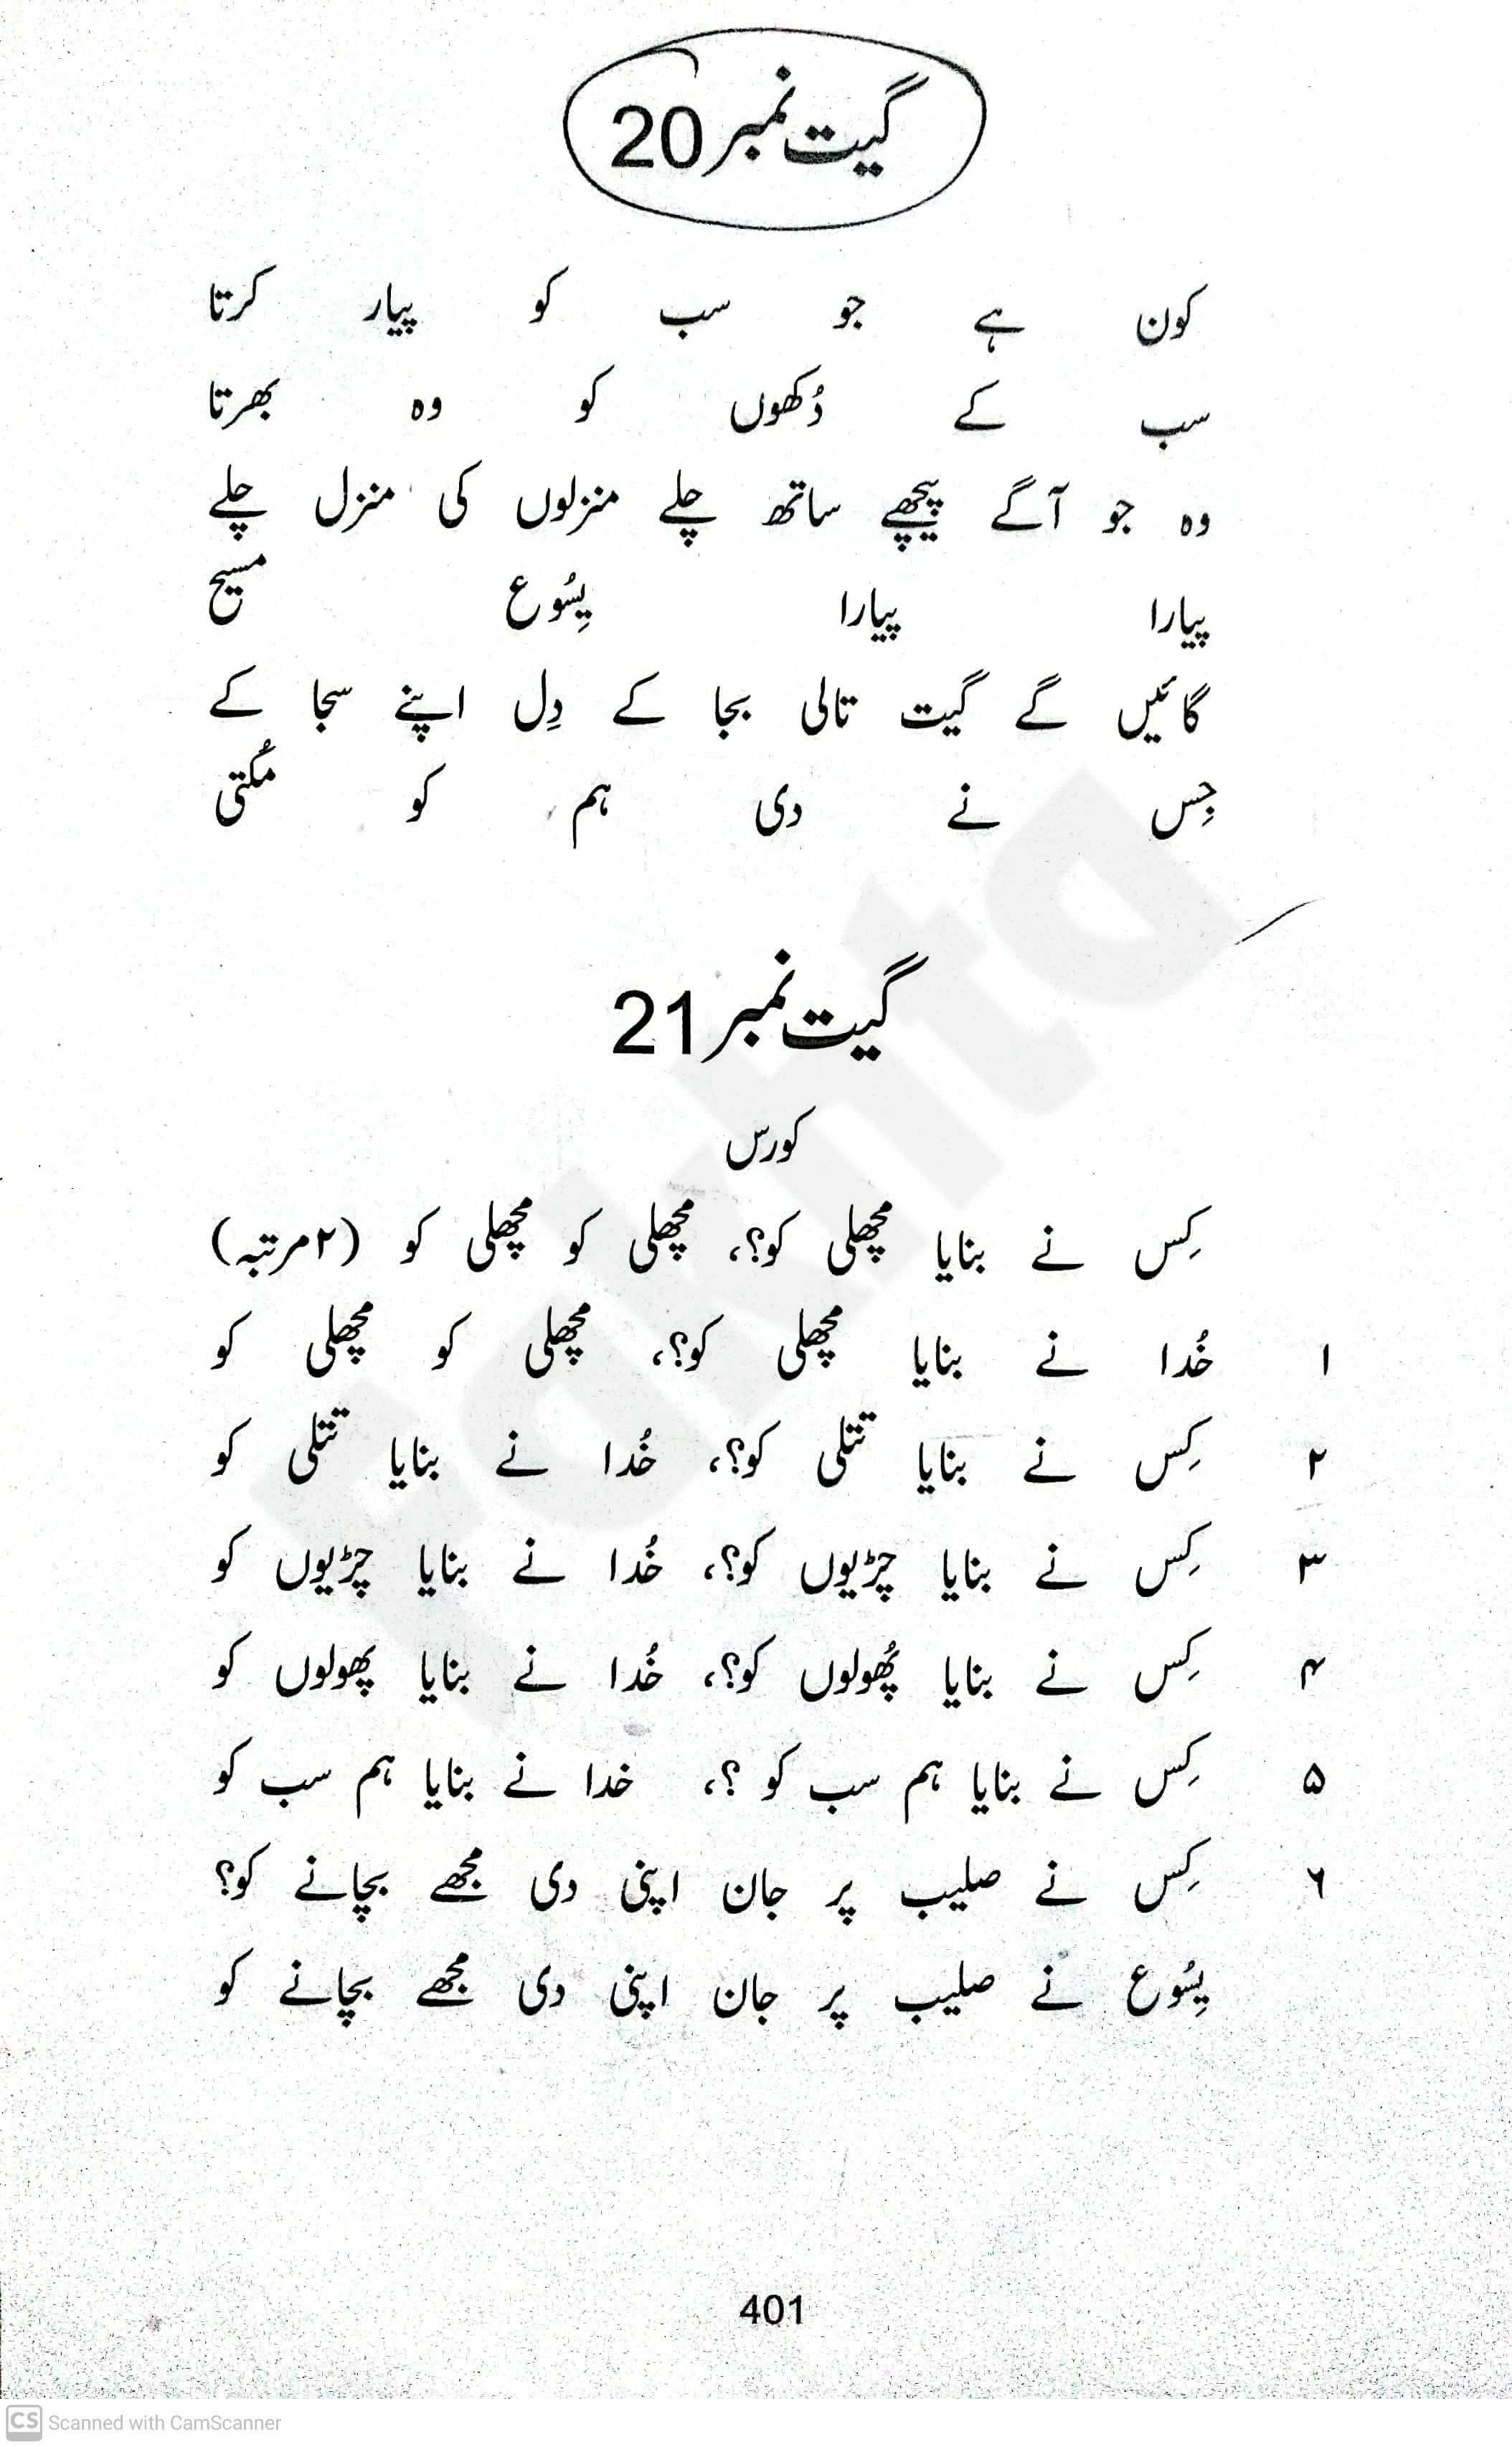 گیت نمبر 20
کون ہے جو سب کو پیار کرتا
سب کے دُکھوں کو وہ بھرتا
وہ جو آگے پیچھے ساتھ چلے منزلوں کی منزل چلے
پیارا پیارا یِسُوع مسیح
گائیں گے گیت تالی بجا کے دِل اپنے سجا کے
جِس نے دی ہم کو مُکتی
گیت نمبر 21
کورس
کِس نے بنایا مچھلی کو؟، مچھلی کو مچھلی کو (۲مرتبہ)
۱ خُدا نے بنایا مچھلی کو؟، مچھلی کو مچھلی کو
۲ کِس نے بنایا تتلی کو؟، خُدا نے بنایا تتلی کو
۳ کِس نے بنایا چڑیوں کو؟، خُدا نے بنایا چڑیوں کو
۴ کِس نے بنایا پُھولوں کو؟، خُدا نے بنایا پھولوں کو
۵ کِس نے بنایا ہم سب کو ؟، خدا نے بنایا ہم سب کو
۶ کِس نے صلیب پر جان اپنی دی مجھے بچانے کو؟
یِسُوع نے صلیب پر جان اپنی دی مجھے بچانے کو
401
Fakhta
CS Scanned with CamScanner